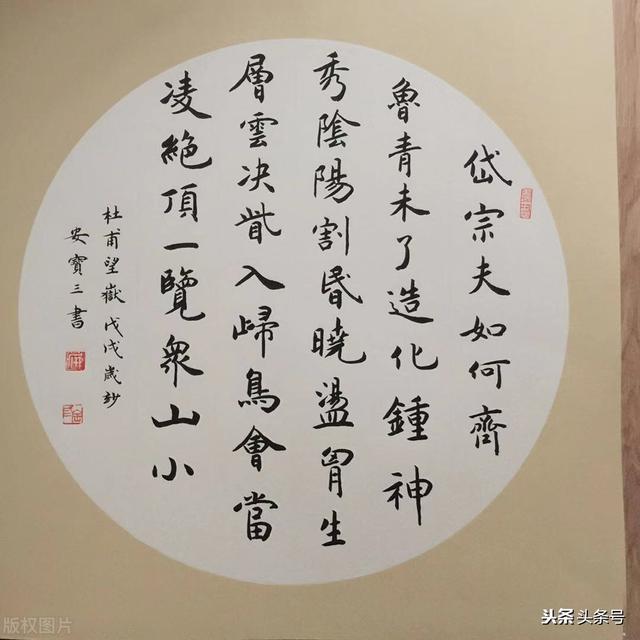 岱宗夫如何齊
魯青未了造化鍾神
秀陰陽割昏曉盪胷生
層雲決眥入歸鳥會當
凌絕頂一覽眾山小
杜甫望嶽戊戌歲杪
安寶三書
版权图片
头条 头条号